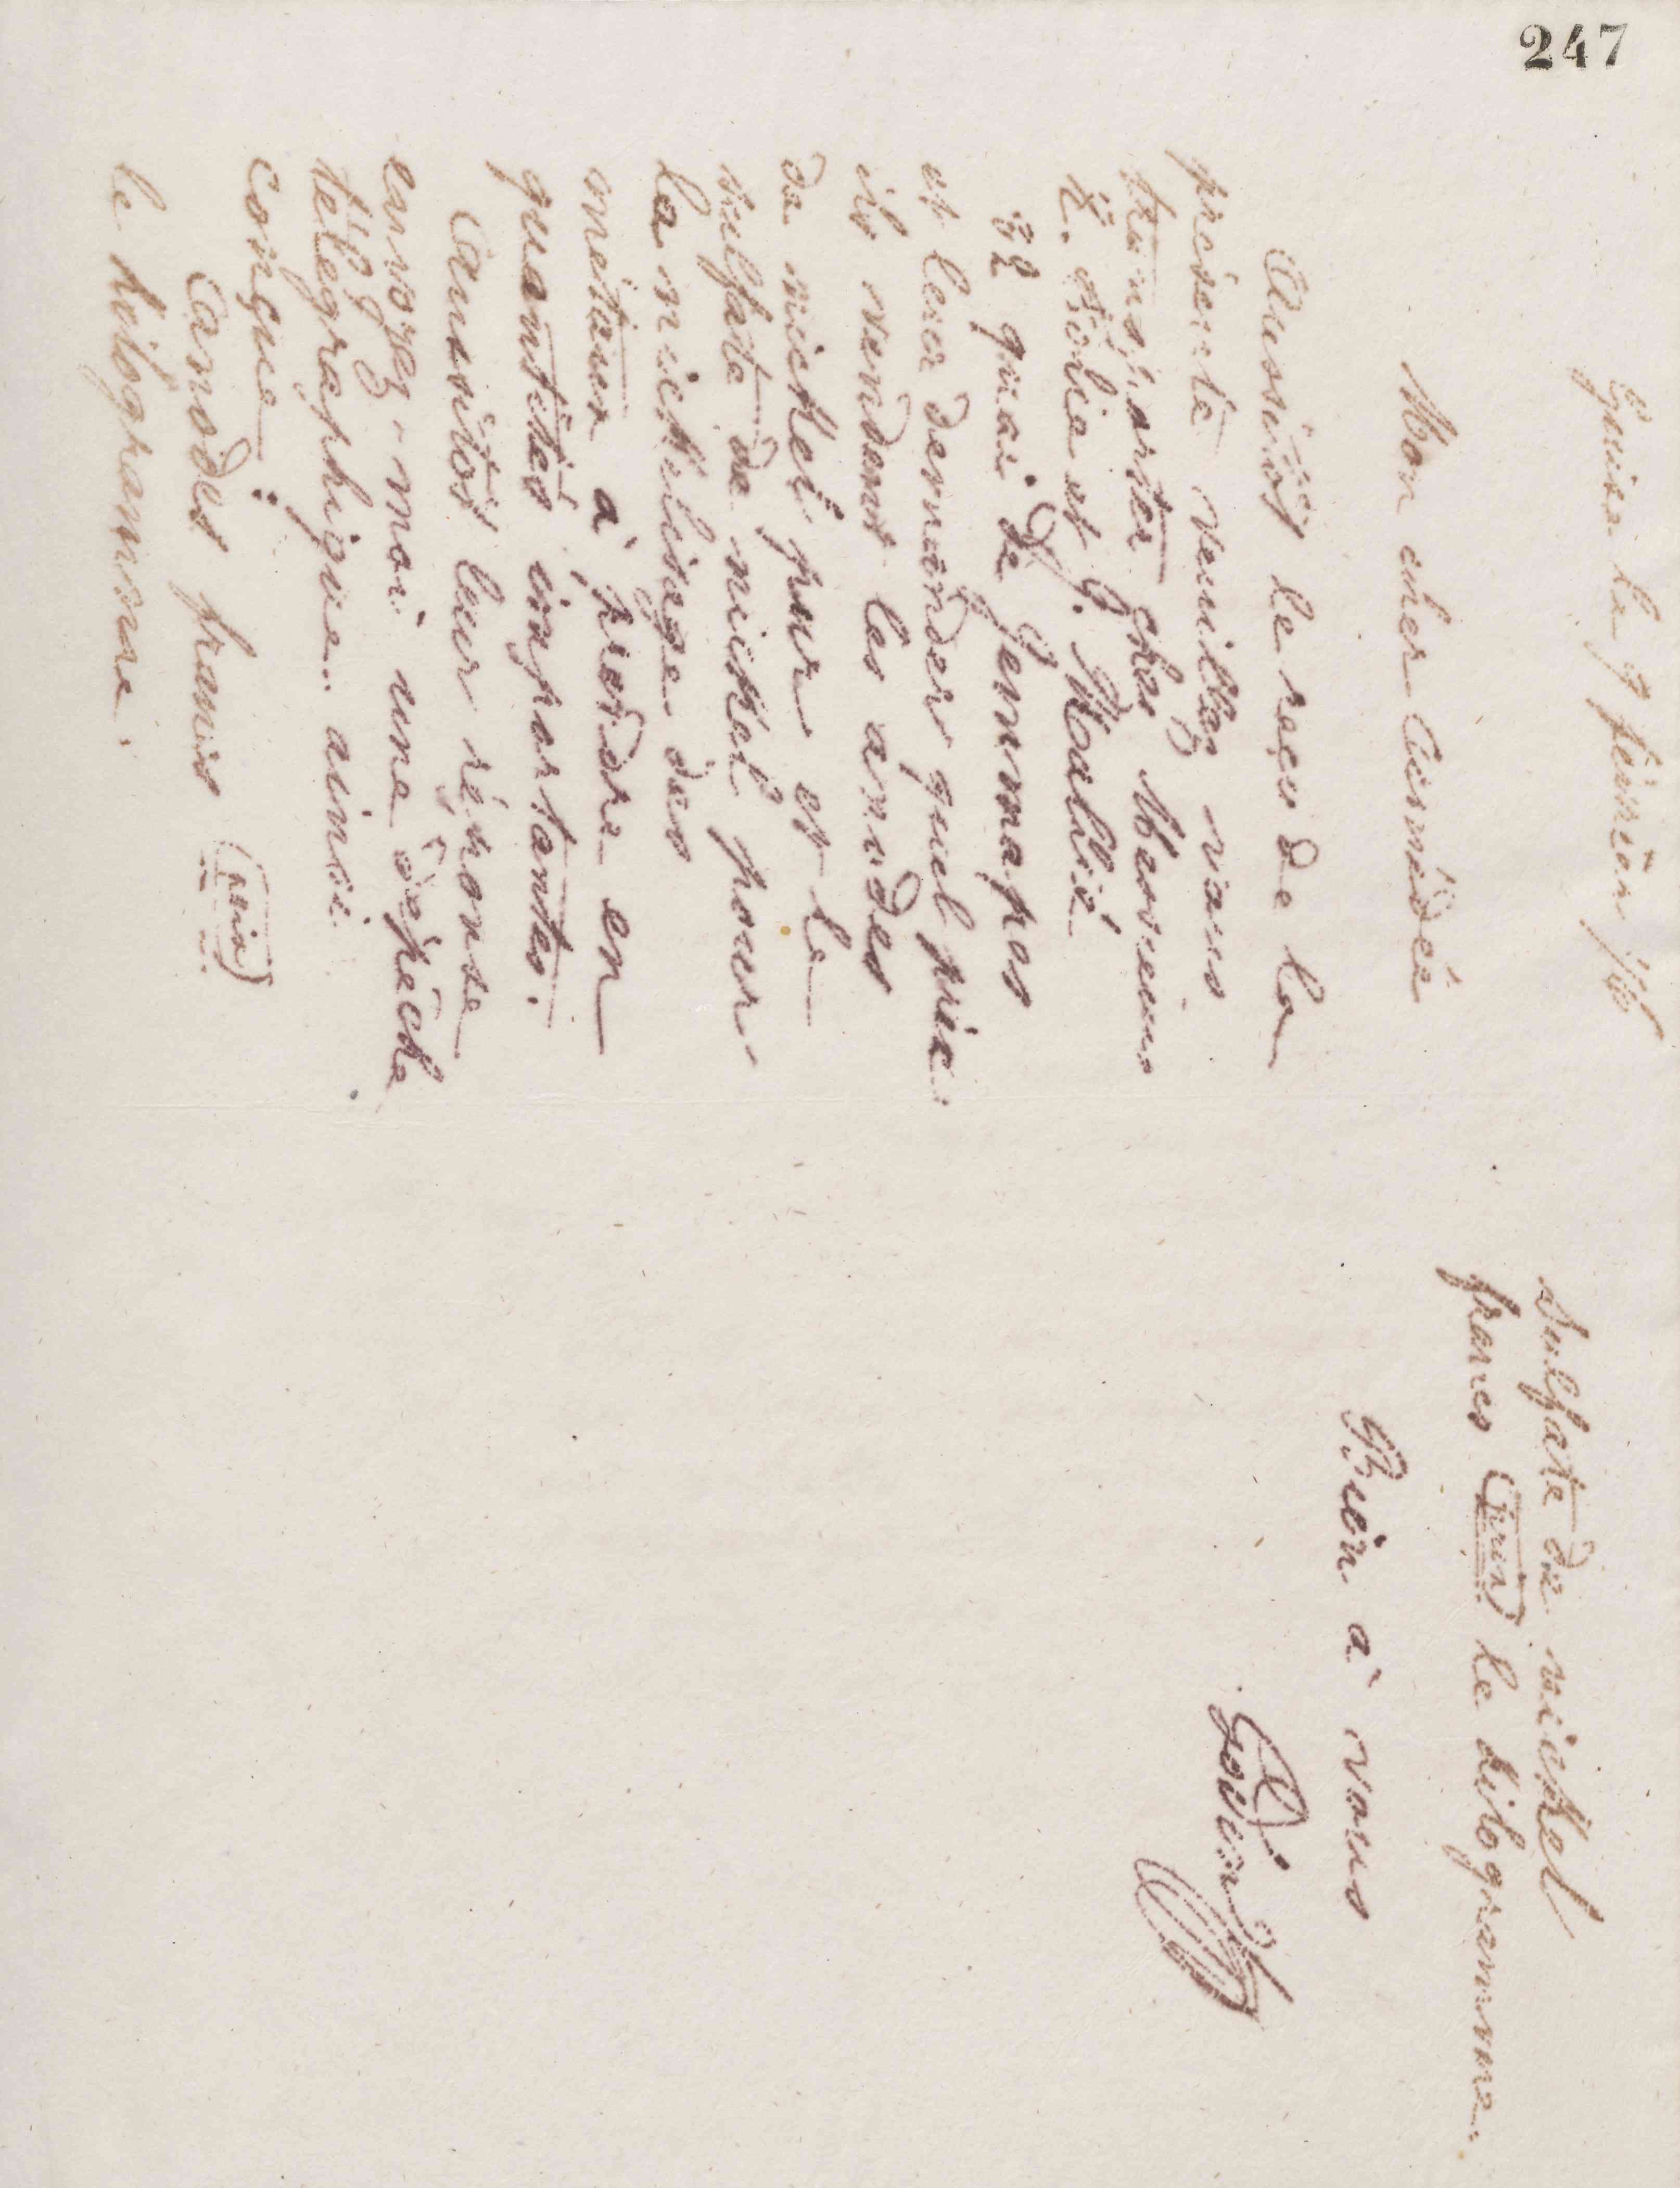 247
Guise le 9 février
Mon cher Amédée
Aussitôt le reçu de la
présente veuillez vous
transporter chez Messieurs
et G.
22 quai de Jemmapes
et leur demander quel prix
ils vendent les anodes
de nickel pur et le
sulfate de nickel pour
le nickelisage des
métaux à prendre en
quantités importantes.
Aussitôt leur réponse
envoyez-moi une dépêche
télégraphique ainsi
conçue :
Anodes francs (prix)
le kilogramme.
Sulfate de nickel
francs (prix) le kilogramme.
Bien à vous
Godin